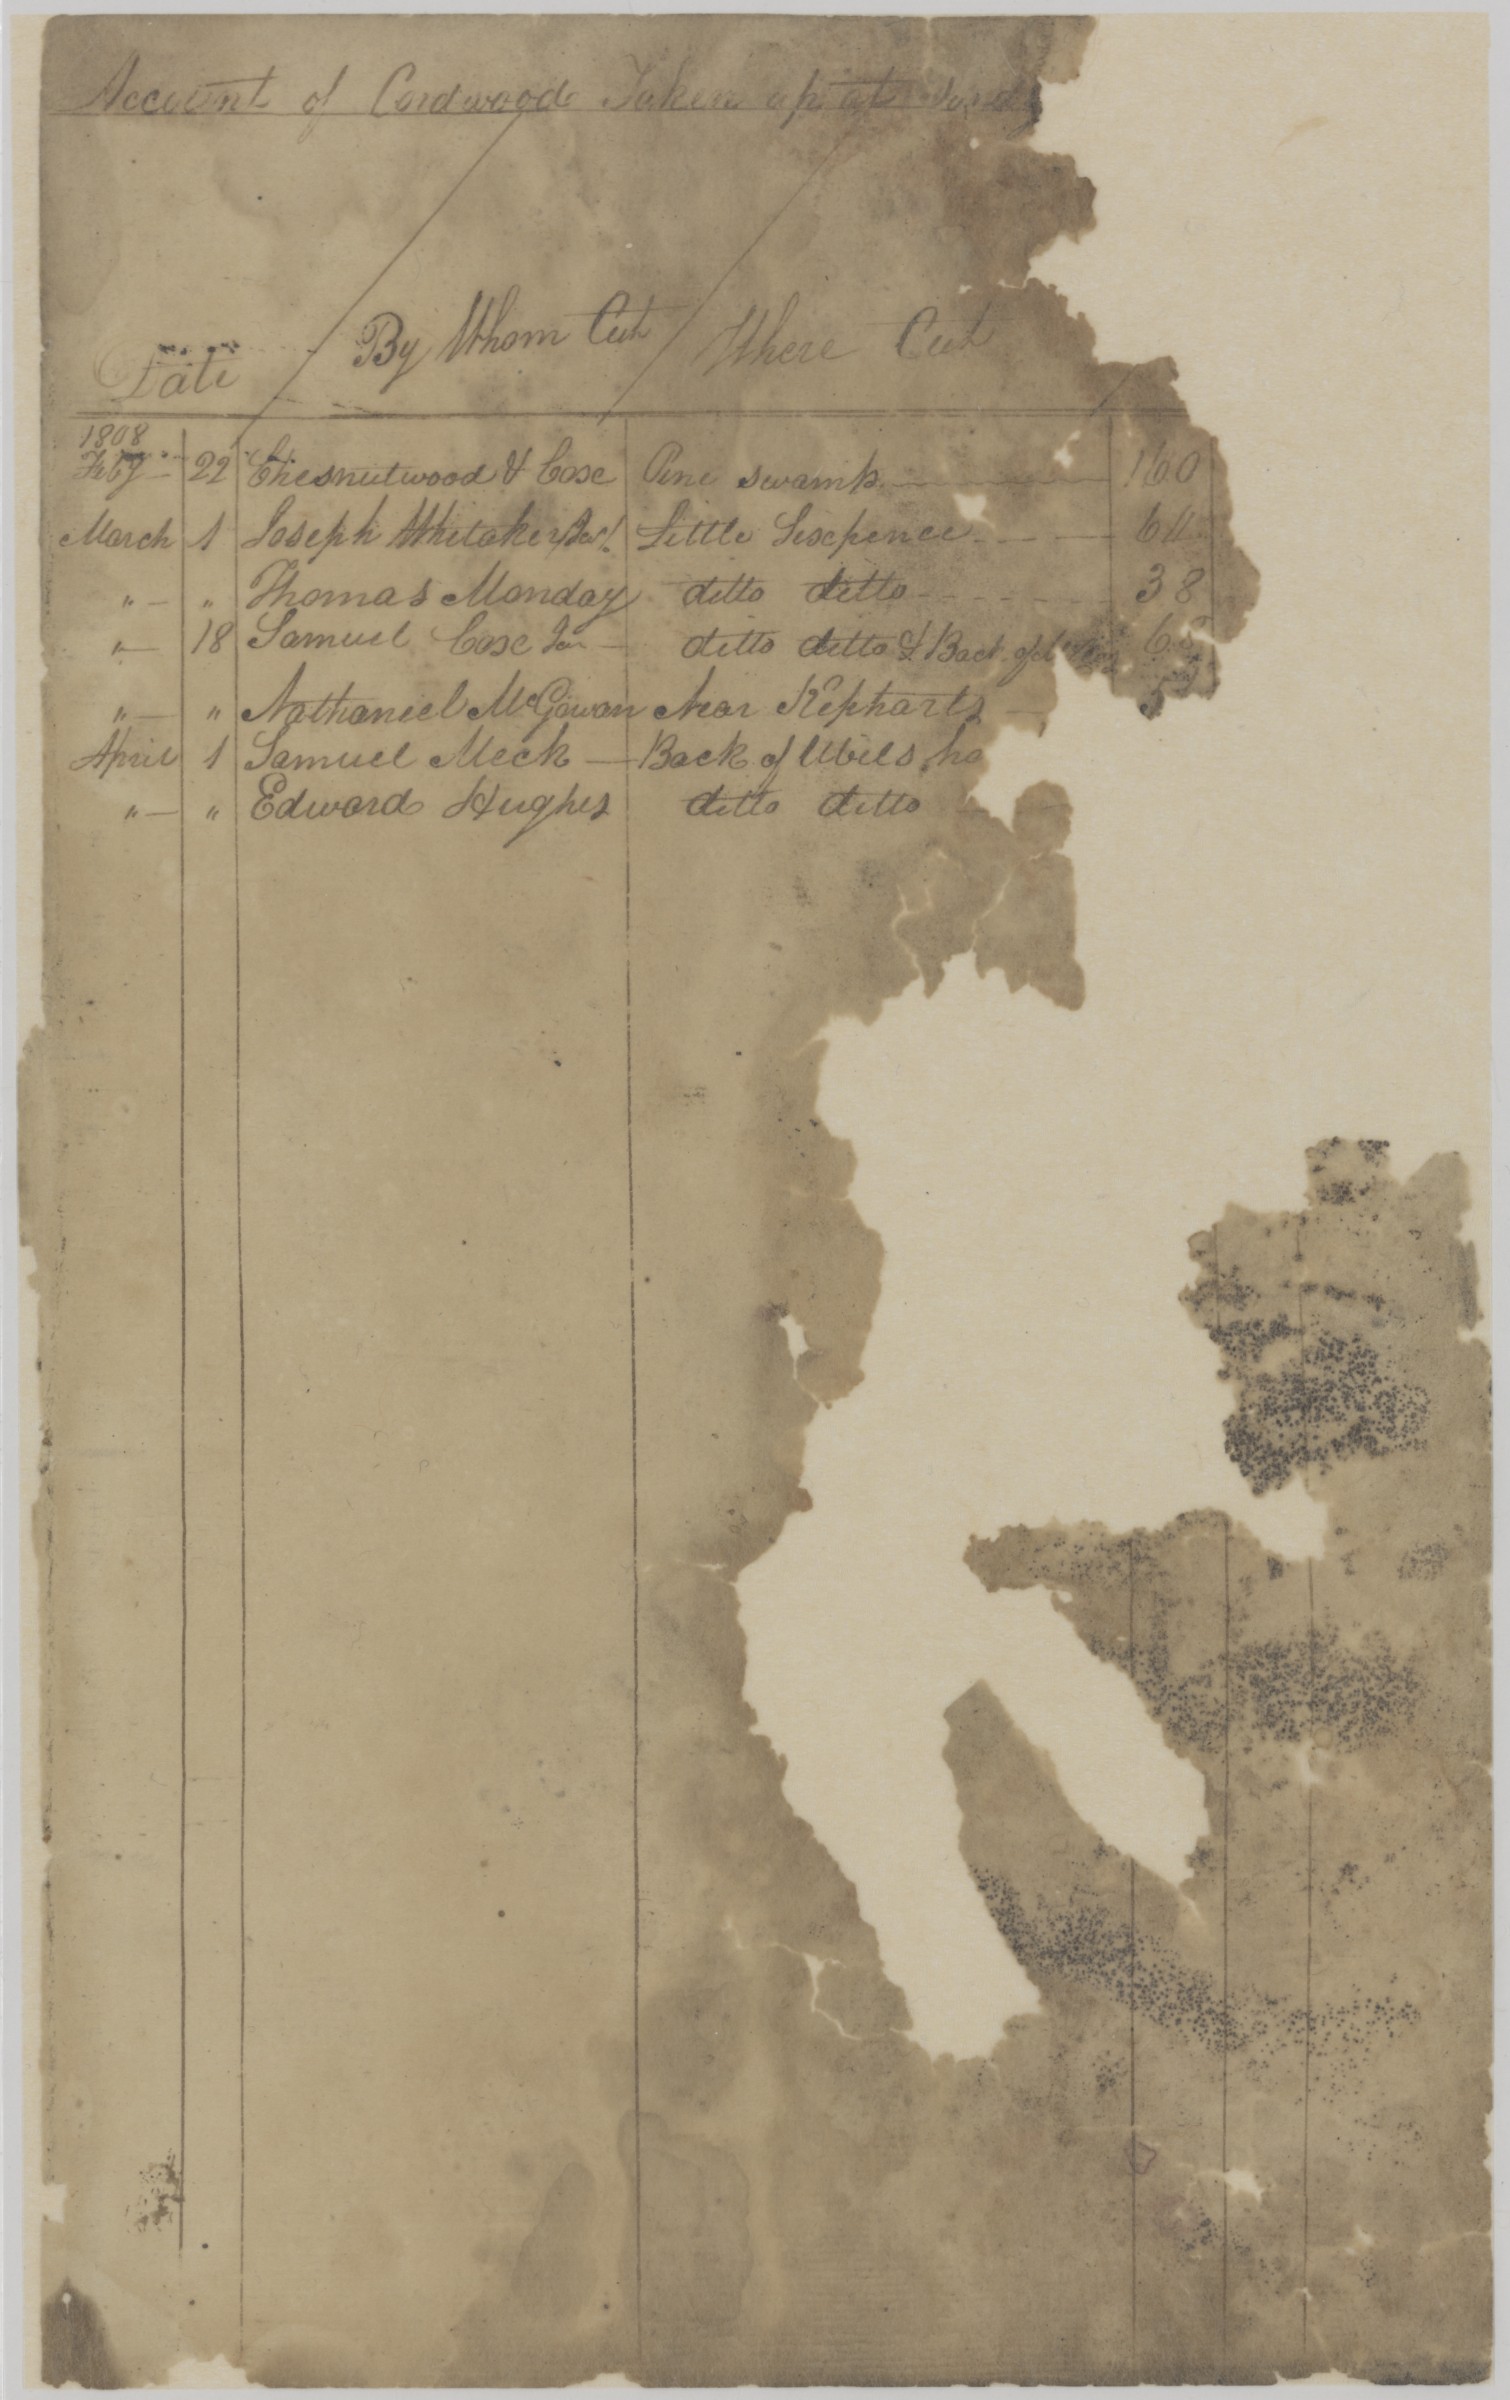 Account of Cordwood Taken up at
Date By Whom Cut Where Cut
1808
Feby 22 Chesnutwood & Coxe Pine swamp 160
March 1 Joseph Whitaker Little Sixpence 64
" " Thomas Monday ditto ditto 38
" 18 Samuel Coxe Jun ditto ditto & Back of
" " Nathaniel McGowan Near Kepharts 5
April 1 Samuel Meck Back of Wills
" " Edward Hughes ditto ditto